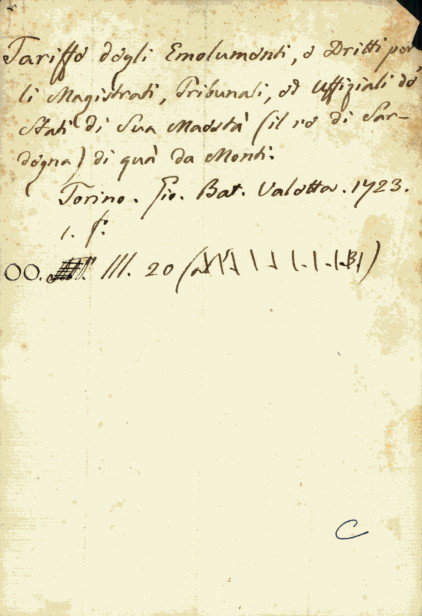 Tariffe degli Emolumenti, e Dritti per
li Magistrati, Tribunali, ed Uffiziali de'
Stati di Sua Maestà (il re di Sar-
degna) di quà da Monti.
Torino. Gio. Bat. Valetta. 1723.
1. f.
OO. III. 20 (
C